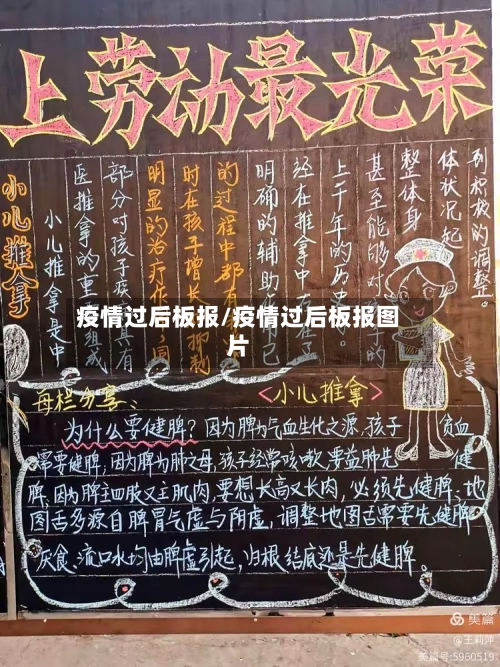 上劳动最光荣
小儿推拿
小儿推拿是中
医推拿的重要组成
部分对孩子疾病具有
明显的治疗作用,同
时在孩子增长抑制
的过程中都有
明确的辅助作用已
经在推拿中存在了
上千年的历史。
甚至能够对孩子的
整体身
体状况起
到积极的调整。
疫情过后板报/疫情过后板报图
片
每栏分享:
<小儿推拿>
为什么要健脾?因为脾为气血生化之源、孩子贫血
需要健脾,因为脾为肺之母,孩子经常咳嗽要益肺先健
脾、因为脾主四肢又主肌肉,要想长高又长肉,必须先健脾、地
图舌多源自脾胃气虚与阴虚,调整地图舌需要先健脾
厌食、流口水均由脾虚引起,归根结底还是先健脾。
美篇
@王莉萍
美篇号:5960519